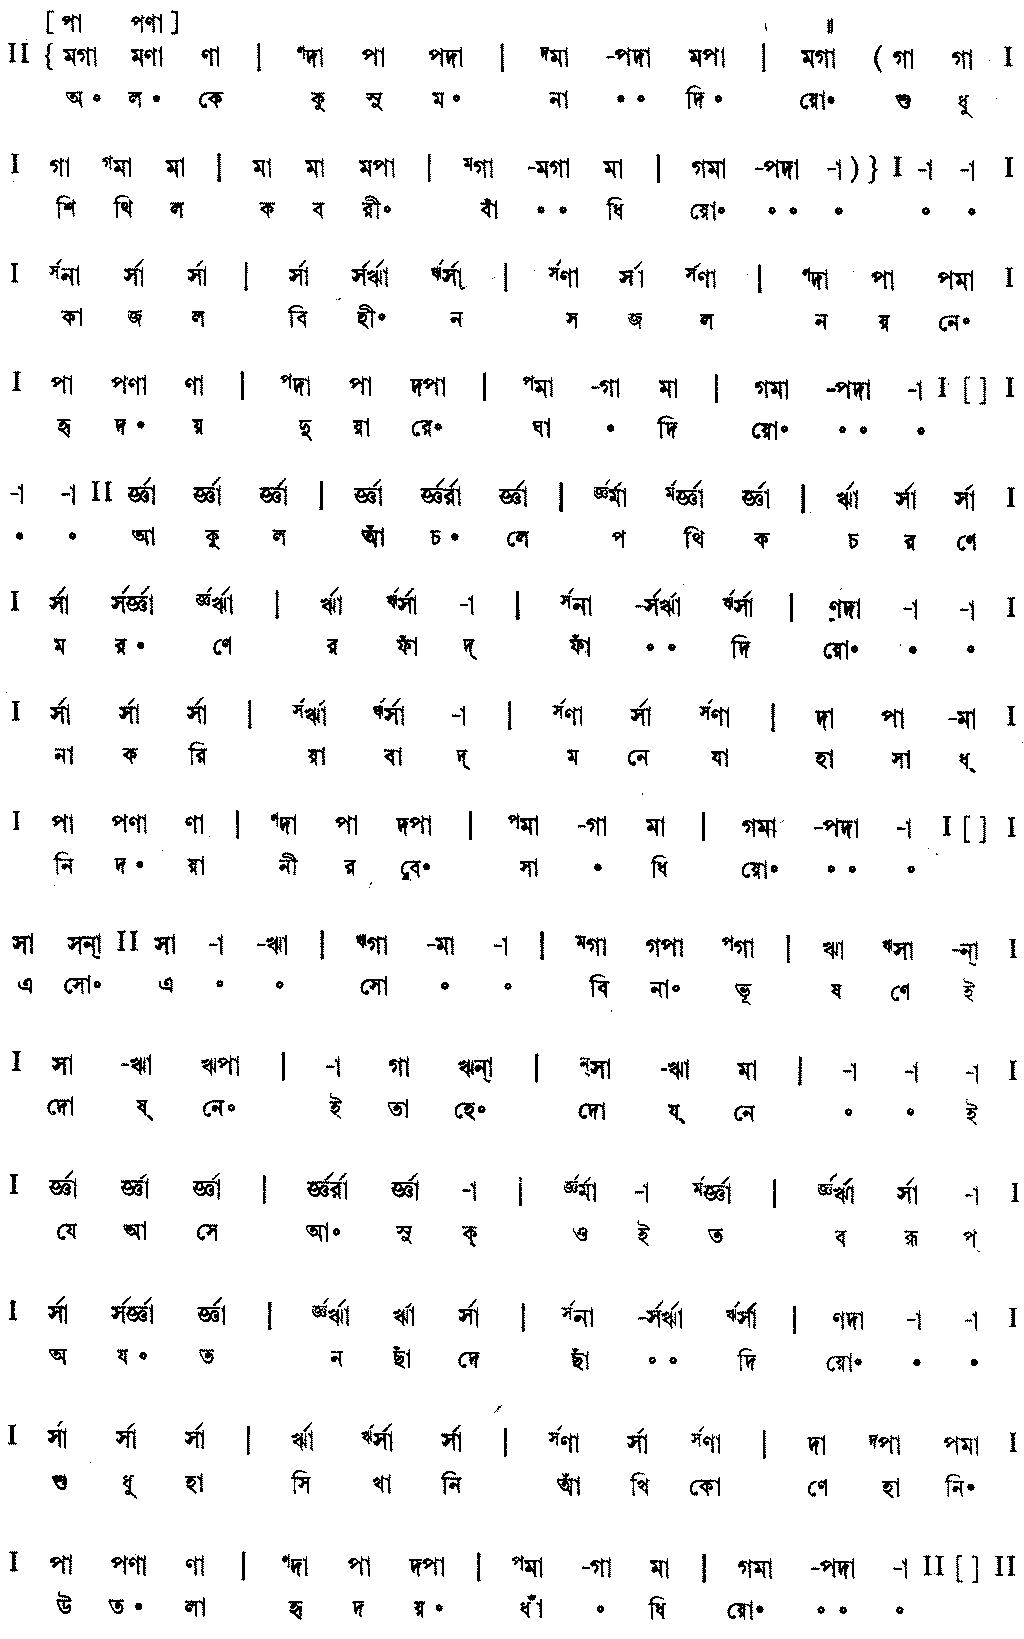 [ পা পণা ]
II { মগা মণা ণা | ণদা পা পদা | দমা -পদা মপা | মগা ( গা গা I
অ॰ ল॰ কে কু সু ম॰ না ॰॰ দি য়ো॰ শু ধু
I গা গমা মা | মা মা মপা | মগা -মগা মা | গমা -পদা -া ) } I -া -া I
শি থি ল ক ব রী॰ বাঁ ॰॰ ধি য়ো॰ ॰॰ ॰ ॰ ॰
I র্সনা র্সা র্সা | র্সা র্সর্ঋা র্ঋর্সা | র্সণা র্সা র্সণা | ণদা পা পমা I
কা জ ল বি হী॰ ন স জ ল ন য় নে॰
I পা পণা ণা | পদা পা দপা | পমা -গা মা | গমা -পদা -া I [ ] I
হৃ দ॰ য় দু য়া রে॰ ঘা ॰ দি য়ো॰ ॰॰ ॰
-া -া II র্জ্ঞা র্জ্ঞা র্জ্ঞা | র্জ্ঞা র্জ্ঞর্রা র্জ্ঞা | র্জ্ঞর্মা র্মর্জ্ঞা র্জ্ঞা | র্ঋা র্সা র্সা I
॰ ॰ আ কু ল আঁ চ॰ লে প থি ক চ র ণে
I র্সা র্সর্জ্ঞা র্জ্ঞর্ঋা | র্ঋা র্ঋর্সা -া | র্সনা -র্সর্ঋা র্ঋর্সা | ণদা -া -া I
ম র॰ ণে র ফাঁ দ্ ফাঁ ॰॰ দি য়ো॰ ॰ ॰
I র্সা র্সা র্সা | র্সর্ঋা র্ঋর্সা -া | র্সণা র্সা র্সণা | দা পা -মা I
না ক রি য়া বা দ্ ম নে যা হা সা ধ্
I পা পণা ণা | ণদা পা দপা | পমা -গা মা | গমা -পদা -া I [ ] I
নি দ॰ য়া নী র বে॰ সা ॰ ধি য়ো॰ ॰॰ ॰
সা সন্া II সা -া -ঋা | ঋগা -মা -া | মগা গপা পগা | ঋা ঋসা -ন্া I
এ সো॰ এ ॰ ॰ সো ॰ ॰ বি না॰ ভূ ষ ণে ই
I সা -ঋা ঋপা | -া গা ঋন্া | ন্সা -ঋা মা | -া -া -া I
দো ষ্ নে॰ ই তা হে॰ দো ষ্ নে ॰ ॰ ই
I র্জ্ঞা র্জ্ঞা র্জ্ঞা | র্জ্ঞর্রা র্জ্ঞা -া | র্জ্ঞর্মা -া র্মর্জ্ঞা | র্জ্ঞর্ঋা র্সা -া I
যে আ সে আ॰ সু ক্ ও ই ত ব রূ প্
I র্সা র্সর্জ্ঞা র্জ্ঞা | র্জ্ঞর্ঋা র্ঋা র্সা | র্সনা -র্সর্ঋা র্ঋর্সা | ণদা -া -া I
অ য॰ ত ন ছাঁ দে ছাঁ ॰॰ দি য়ো॰ ॰ ॰
I র্সা র্সা র্সা | র্ঋা র্ঋর্সা র্সা | র্সণা র্সা র্সণা | দা দপা পমা I
শু ধু হা সি খা নি আঁ খি কো ণে হা নি॰
I পা পণা ণা | ণদা পা দপা | পমা -গা মা | গমা -পদা -া II [ ] II
উ ত॰ লা হৃ দ য়॰ ধাঁ ॰ ধি য়ো॰ ॰॰ ॰